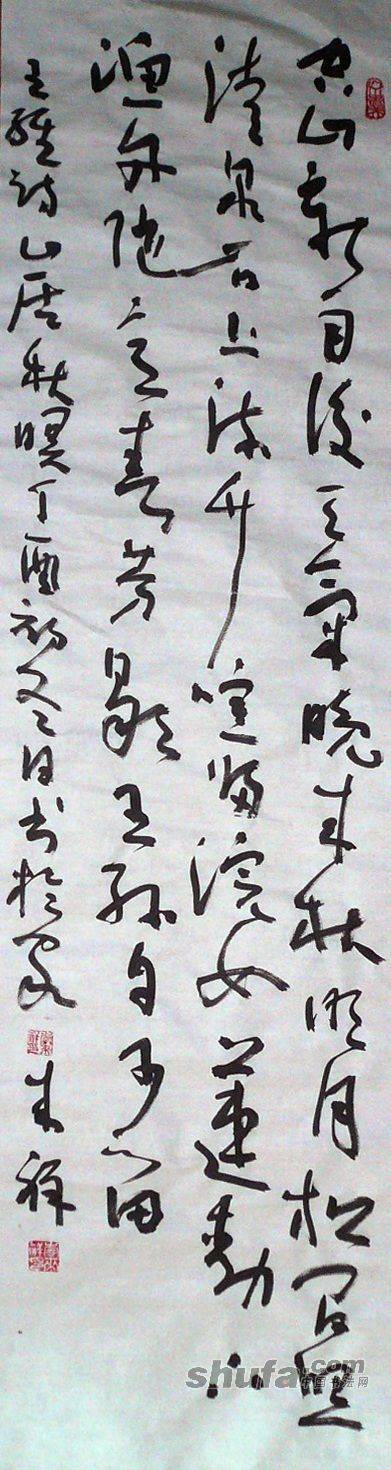 空山新雨後天氣晚来秋明月松间照
清泉石上流竹喧歸浣女蓮動下
漁舟随意春芳歇王孫自可留
王維詩山居秋暝丁酉初冬日书於家 来祥
shufa.com
中国书法网